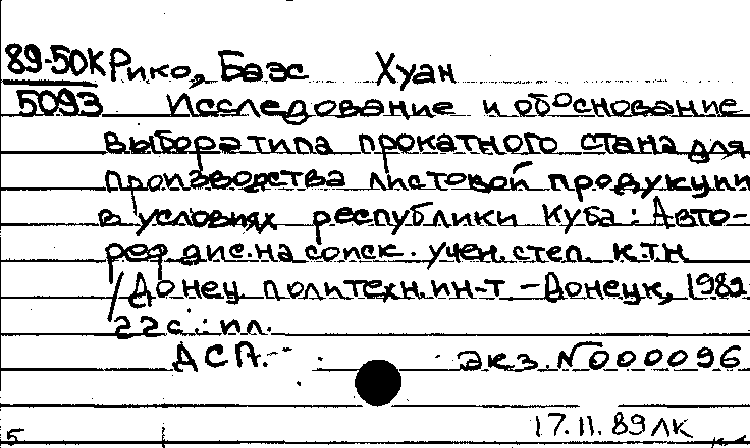 89-50К Рико, Баэс Хуан
5093 Исследование и обоснование
выбора типа прокатного стана для
производства листовой продукции
в условиях республики Куба: Авто-
реф дис. на соиск. учен. степ. к.т.н
/Донец. политехн. ин-т - Донецк, 1982
22с.: ил.
ДСП. экз. №000096
17.11.89 ЛК
5